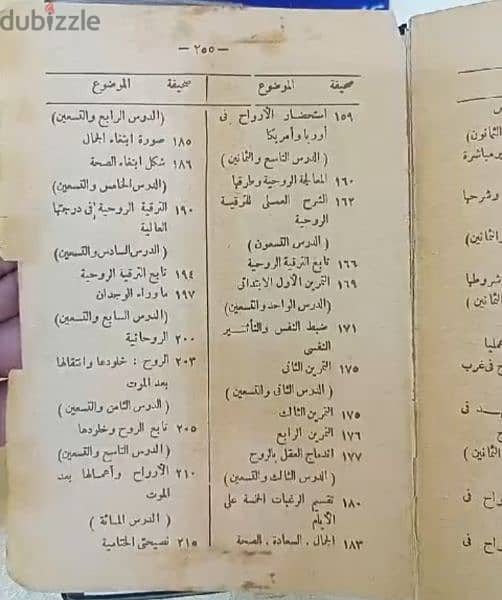 dubizzle
— ٢٥٥ —
صحيفة الموضوع
١٥٩ استحضار الأرواح فى
أوربا وأمريكا
( الدرس التاسع والثمانين )
١٦٠ المعالجة الروحية وطرقها
١٦٣ الشرح العملى للترقية
الروحية
( الدرس التسعون )
١٦٦ تابع الترقية الروحية
١٦٩ التمرين الأول الابتدائى
( الدرس الواحد والتسعين )
١٧١ ضبط النفس والتأثير
النفسى
١٧٥ التمرين الثانى
( الدرس الثانى والتسعين )
١٧٥ التمرين الثالث
١٧٦ التمرين الرابع
١٧٧ اندماج العقل بالروح
( الدرس الثالث والتسعين )
١٨٠ تقسيم الرغبات الخمسة على
الأيام
١٨٣ الجمال . السعادة . الصحة
صحيفة الموضوع
( الدرس الرابع والتسعين )
١٨٥ صورة ابتغاء الجمال
١٨٦ شكل ابتغاء الصحة
( الدرس الخامس والتسعين )
١٩٠ الترقية الروحية فى درجتها
العالية
( الدرس السادس والتسعين )
١٩٤ تابع الترقية الروحية
١٩٧ ماوراء الوجدان
( الدرس السابع والتسعين )
٢٠٠ الروحانية
٢٠٣ الروح : خلودها وانتقالها
بعد الموت
( الدرس الثامن والتسعين )
٢٠٥ تابع الروح وخلودها
( الدرس التاسع والتسعين )
٢١٠ الأرواح وأعمالها بعد
الموت
( الدرس المائة )
٢١٥ نصيحتى الختامية
الثمانون )
مباشرة
وشرحها
الثمانين )
شروطها
الثمانين )
عمليا
فى غرب
فى
الثمانين )
اح فى
اح فى